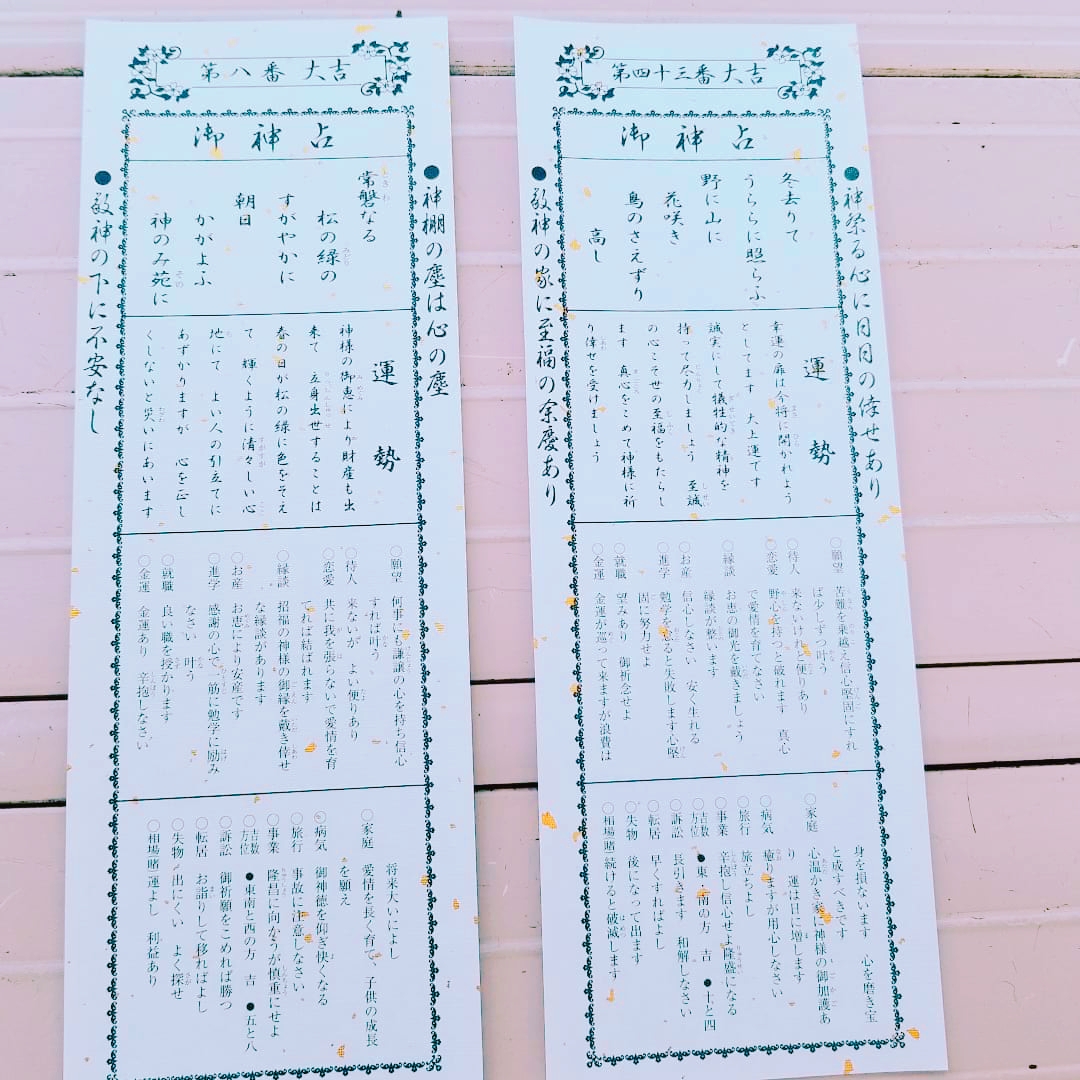 第四十三番 大吉
御神占
●神祭る心に日日の倖せあり
冬去りて
うららに照らふ
野に山に
花咲き
鳥のさえずり
高し
運勢
幸運の扉は今將に開かれよう
としてます 大上運です
誠実にして犠牲的な精神を
持って尽力しましょう 至誠
の心こそ世の至福をもたらし
ます 真心をこめて神様に祈
り倖せを受けましょう
○願望 苦難を乗越え信心堅固にすれ
ば少しずつ叶う
○待人 来ないけれど便りあり
○恋愛 野心を持つと破れます 真心
で愛情を育てなさい
○縁談 お恵の御光を戴きましょう
縁談が整います
○お産 信心しなさい 安く生れる
○進学 勉学を怠ると失敗します心堅
固に努力せよ
○就職 望みあり 御祈念せよ
○金運 金運が巡って来ますが浪費は
身を損ないます 心を磨き宝
と成すべきです
○家庭 心温かき家に神様の御加護あ
り 運は日に増します
○病気 癒りますが用心しなさい
○旅行 旅立ちよし
○事業 辛抱し信心せよ隆盛になる
○吉数方位 ●東・南の方 吉 ●十と四
○訴訟 長引きます 和解しなさい
○転居 早くすればよし
○失物 後になって出ます
○相場(賭) 続けると破滅します
●敬神の家に至福の余慶あり
第八番 大吉
御神占
●神棚の塵は心の塵
常磐なる
松の緑の
すがやかに
朝日
かがよふ
神のみ苑に
運勢
神様の御恵により財産も出
来て 立身出世することは
春の日が松の緑に色をそえ
て 輝くように清々しい心
地にて よい人の引立てに
あずかりますが 心を正し
くしないと災いにあいます
○願望 何事にも謙譲の心を持ち信心
すれば叶う
○待人 来ないが よい便りあり
○恋愛 共に我を張らないで愛情を育
てれば結ばれます
○縁談 招福の神様の御縁を戴き倖せ
な縁談があります
○お産 お恵により安産です
○進学 感謝の心で一筋に勉学に励み
なさい 叶う
○就職 良い職を授かります
○金運 金運あり 辛抱しなさい
将来大いによし
○家庭 愛情を長く育て、子供の成長
を願え
○病気 御神徳を仰ぎ快くなる
○旅行 事故に注意しなさい
○事業 隆昌に向かうが慎重にせよ
○吉数方位 ●東南と西の方 吉 ●五と八
○訴訟 御祈願をこめれば勝つ
○転居 お詣りして移ればよし
○失物 出にくい よく探せ
○相場(賭) 運よし 利益あり
●敬神の下に不安なし